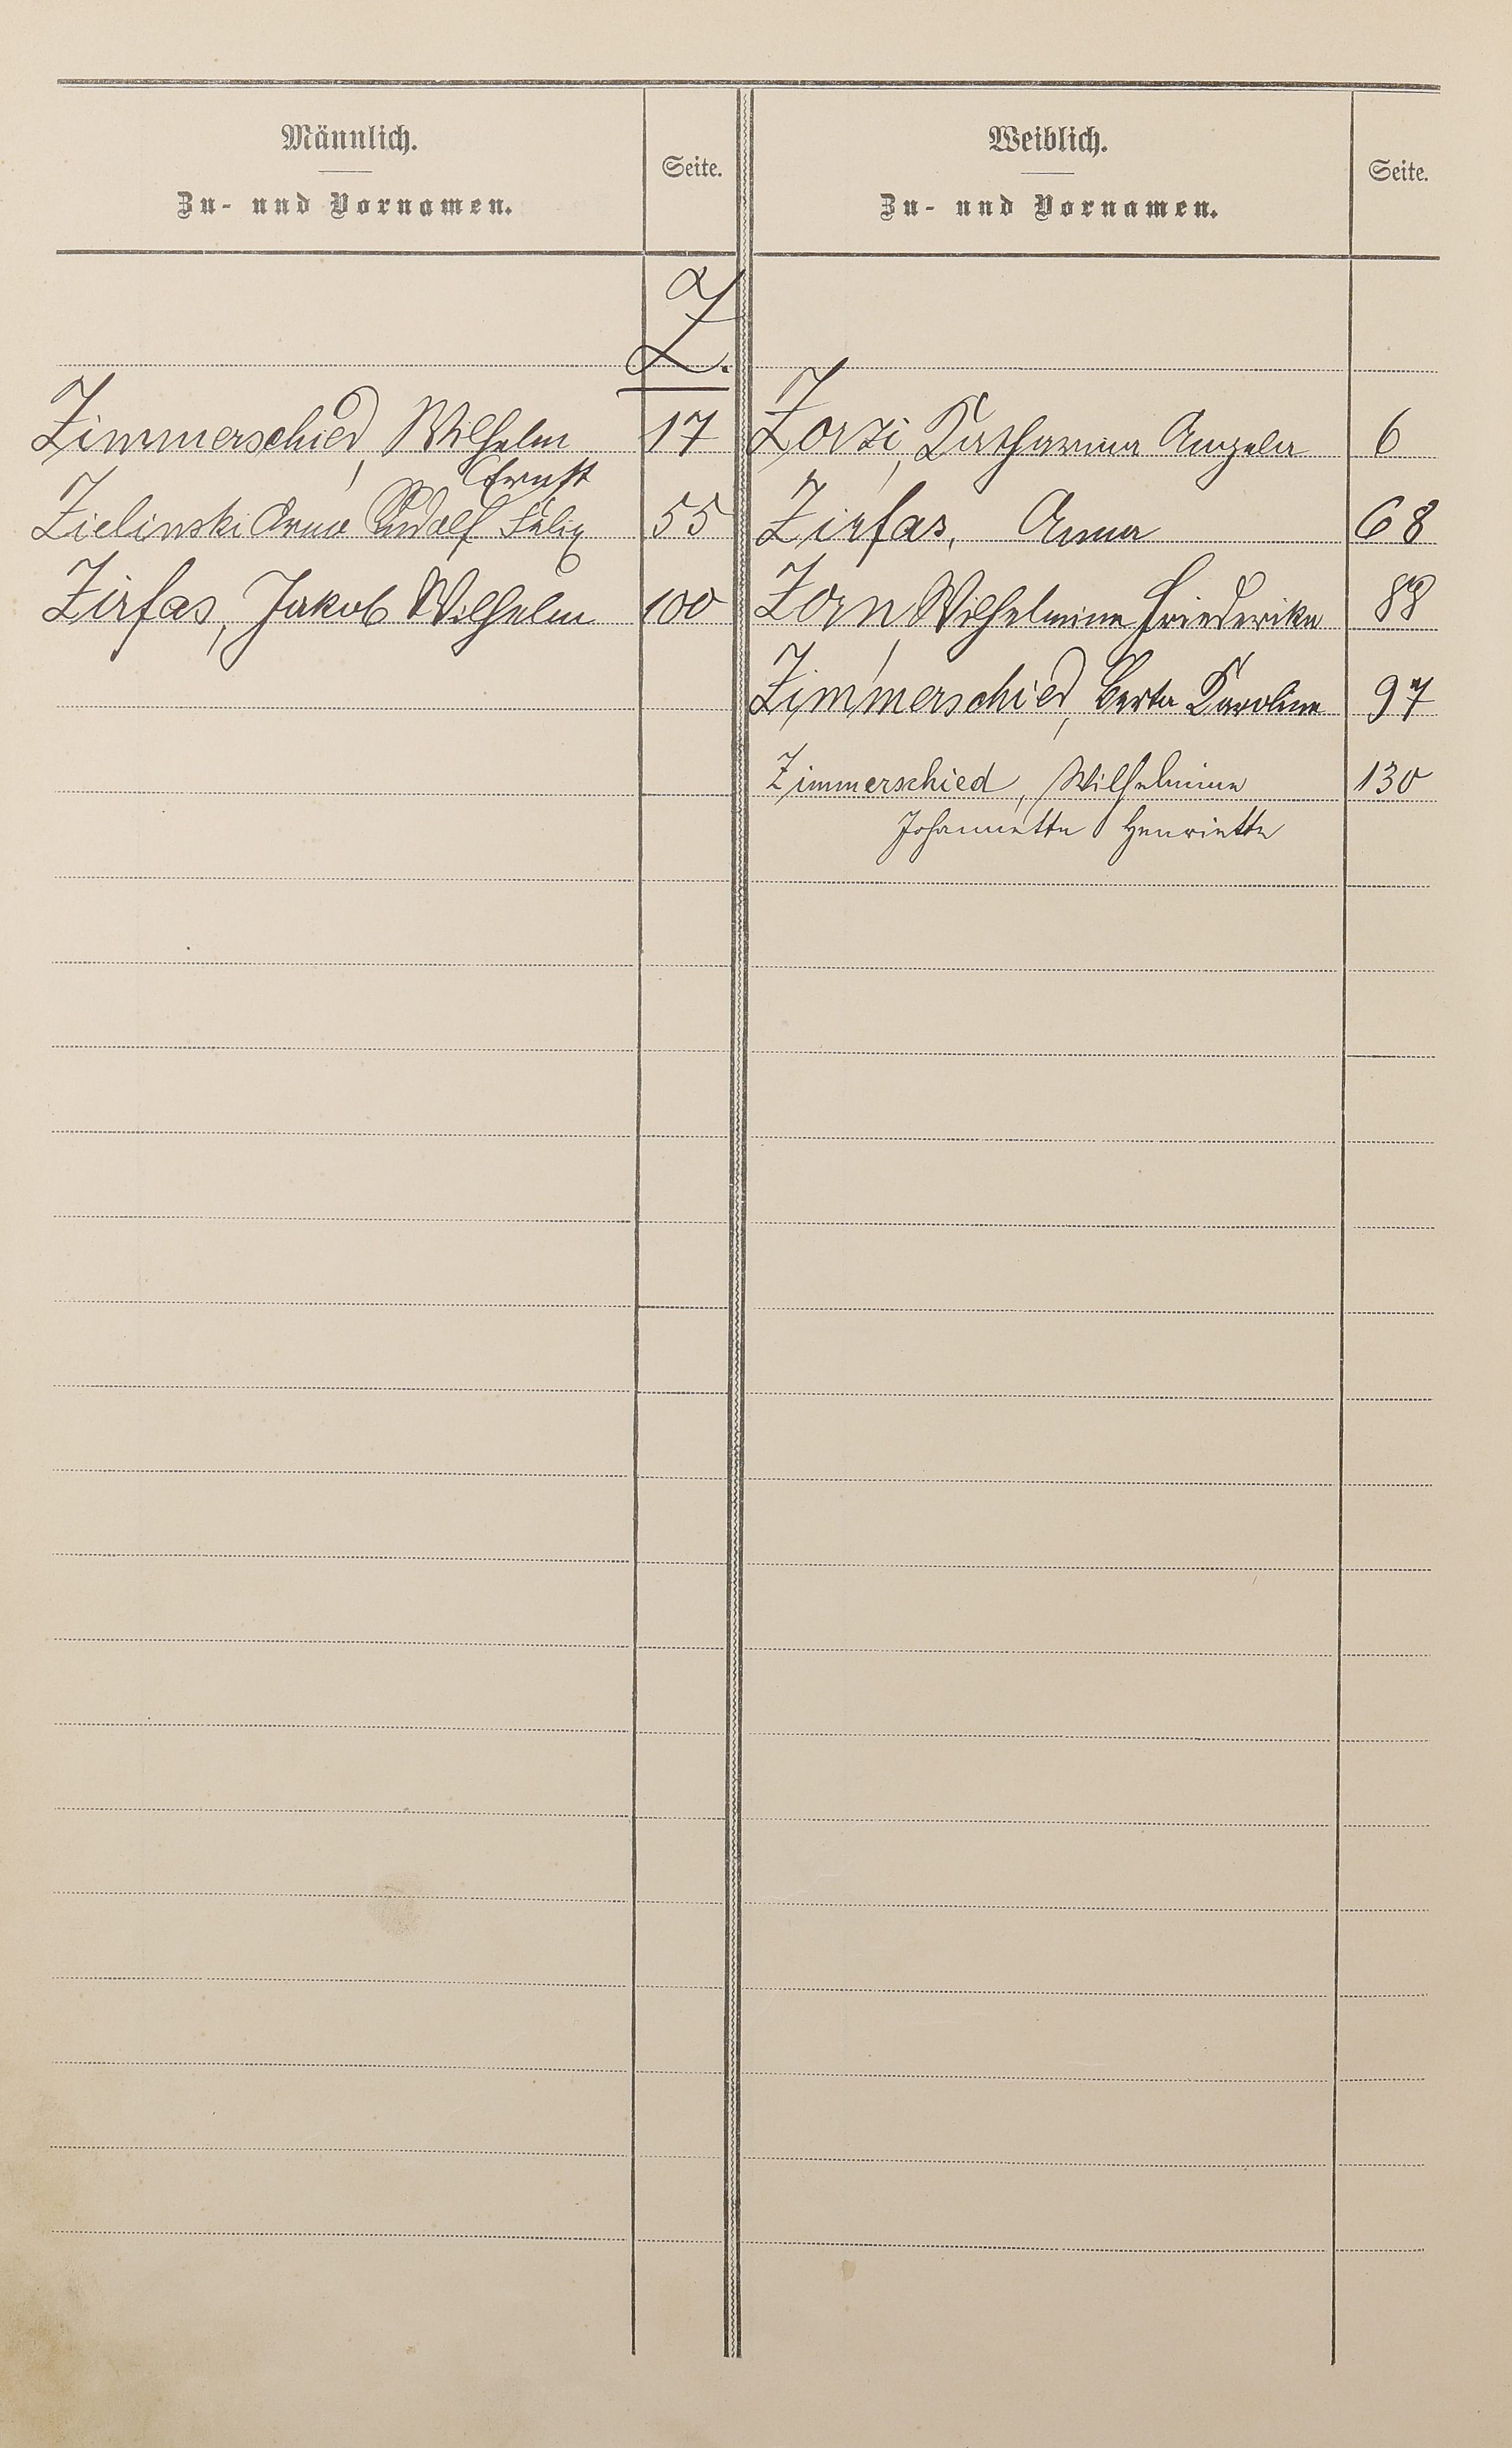 Männlich.
Zu- und Vornamen.
Seite.
Weiblich.
Zu- und Vornamen.
Seite.
Z.
Zimmerschied, Wilhelm 17
Ernst
Zielinski Arno Rudolf Felix 55
Zirfas, Jakob Wilhelm 100
Zorzi, Katharina Angela 6
Zirfas, Anna 68
Zorn, Wilhelmine Friederike 88
Zimmerschied, Berta Karoline 97
Zimmerschied, Wilhelmine 130
Johannette Henriette